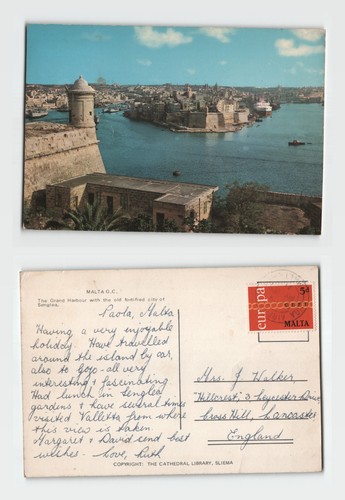 MALTA G.C.
The Grand Harbour with the old fortified city of
Senglea.
Paola, Malta
Having a very enjoyable
holiday. Have travelled
around the island by car,
also to Gozo - all very
interesting & fascinating
Had lunch in
gardens & have several times
visited Valletta from where
this view is taken
Margaret & David send best
wishes - Love, Ruth
europa
5d
MALTA
Mrs. J. Walker,
"Hillcrest", 3 Leycester Drive
Cross Hill, Lancaster
England
COPYRIGHT: THE CATHEDRAL LIBRARY, SLIEMA